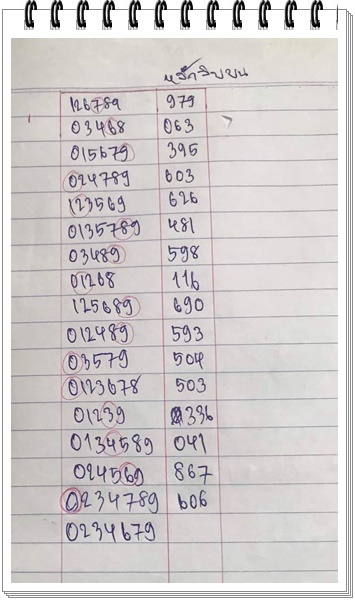 หลักสิบบน
126789 979
03468 063
015679 395
024789 603
123569 626
0135789 481
03489 598
01268 116
125689 690
012489 593
03579 504
0123678 503
01239 336
0134589 041
024569 867
0234789 606
0234679